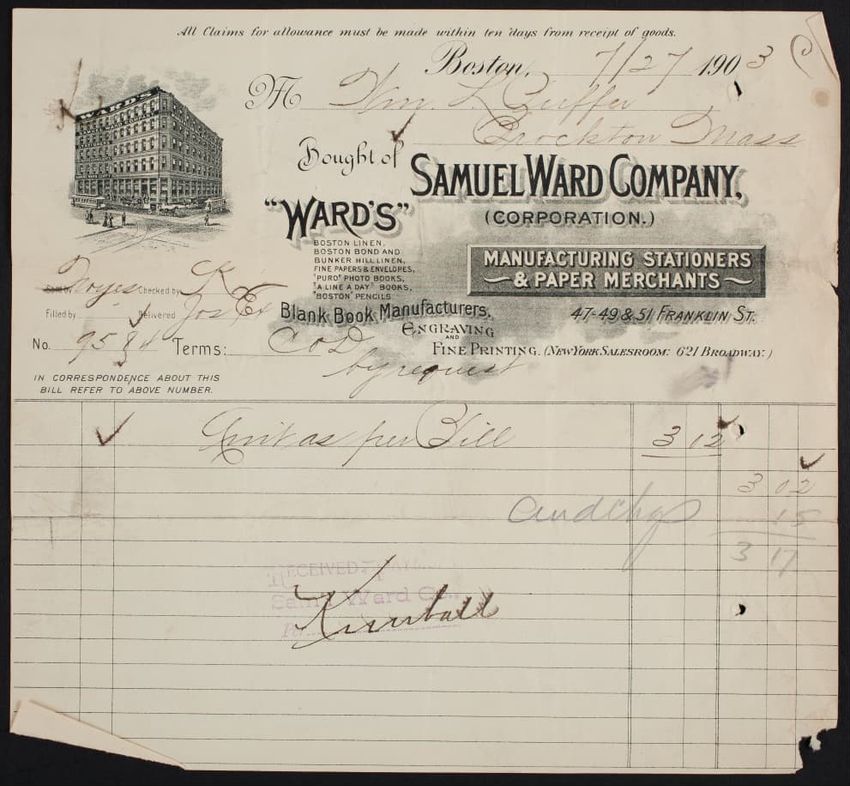 All Claims for allowance must be made within ten days from receipt of goods.
Boston, 7/27 1903
M Wm. L Puffer
Brockton Mass
WARD'S
Bought of
SAMUEL WARD COMPANY,
(CORPORATION.)
"WARD'S"
BOSTON LINEN,
BOSTON BOND AND
BUNKER HILL LINEN,
FINE PAPERS & ENVELOPES,
"PURO" PHOTO BOOKS,
"A LINE A DAY" BOOKS,
"BOSTON" PENCILS
MANUFACTURING STATIONERS
& PAPER MERCHANTS
47-49 & 51 FRANKLIN ST.
Blank Book Manufacturers.
ENGRAVING
AND
FINE PRINTING. (NEW YORK SALESROOM: 621 BROADWAY.)
Sold by Noyes Checked by K
Filled by Delivered Jos Ex
No. 9584 Terms: C O D
by request
IN CORRESPONDENCE ABOUT THIS
BILL REFER TO ABOVE NUMBER.
Amt as per Bill 3 12
3 02
and chgs 15
3 17
RECEIVED PAYMENT
Sam'l Ward Co.,
Kimball